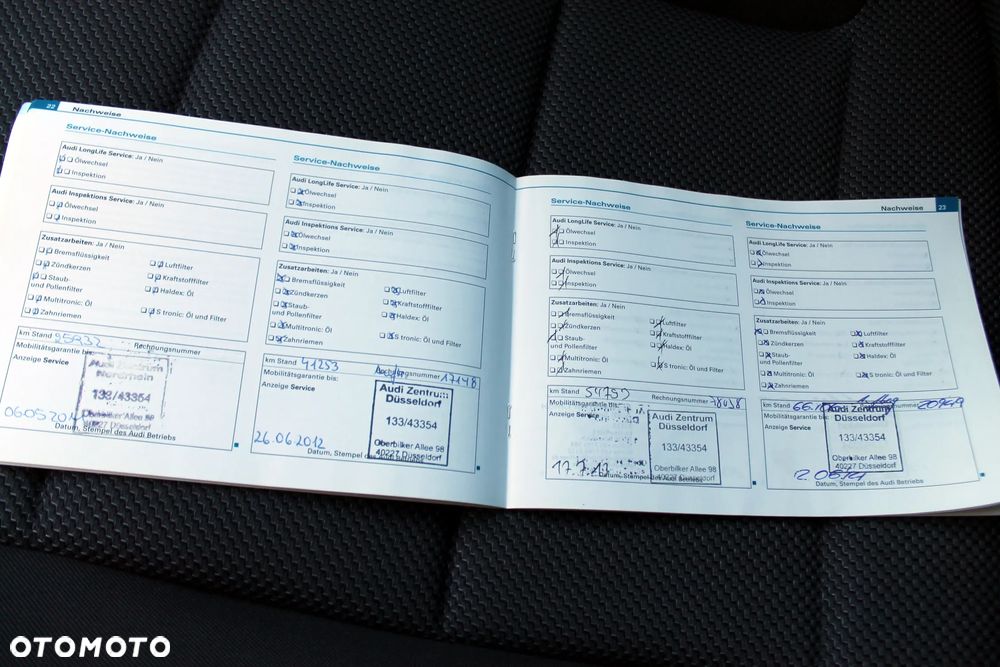 22 Nachweise
Service-Nachweise
Audi LongLife Service: Ja / Nein
Ölwechsel
Inspektion
Audi Inspektions Service: Ja / Nein
Ölwechsel
Inspektion
Zusatzarbeiten: Ja / Nein
Bremsflüssigkeit
Zündkerzen
Staub-
und Pollenfilter
Multitronic: Öl
Zahnriemen
Luftfilter
Kraftstofffilter
Haldex: Öl
S tronic: Öl und Filter
km Stand 25932 Rechnungsnummer
Mobilitätsgarantie bis:
Anzeige Service
Audi Zentrum
Nordrhein
133/43354
Oberbilker Allee 98
40227 Düsseldorf
Datum, Stempel des Audi Betriebs
Service-Nachweise
Audi LongLife Service: Ja / Nein
Ölwechsel
Inspektion
Audi Inspektions Service: Ja / Nein
Ölwechsel
Inspektion
Zusatzarbeiten: Ja / Nein
Bremsflüssigkeit
Zündkerzen
Staub-
und Pollenfilter
Multitronic: Öl
Zahnriemen
Luftfilter
Kraftstofffilter
Haldex: Öl
S tronic: Öl und Filter
km Stand 41253 Rechnungsnummer 17148
Mobilitätsgarantie bis:
Anzeige Service
Audi Zentrum
Düsseldorf
133/43354
Oberbilker Allee 98
40227 Düsseldorf
26.06.2012
Datum, Stempel des Audi Betriebs
Service-Nachweise
Audi LongLife Service: Ja / Nein
Ölwechsel
Inspektion
Audi Inspektions Service: Ja / Nein
Ölwechsel
Inspektion
Zusatzarbeiten: Ja / Nein
Bremsflüssigkeit
Zündkerzen
Staub-
und Pollenfilter
Multitronic: Öl
Zahnriemen
Luftfilter
Kraftstofffilter
Haldex: Öl
S tronic: Öl und Filter
km Stand 54759 Rechnungsnummer
Mobilitätsgarantie bis:
Anzeige Service
Audi Zentrum
Düsseldorf
133/43354
Oberbilker Allee 98
40227 Düsseldorf
17.7.13
Datum, Stempel des Audi Betriebs
Nachweise 23
Service-Nachweise
Audi LongLife Service: Ja / Nein
Ölwechsel
Inspektion
Audi Inspektions Service: Ja / Nein
Ölwechsel
Inspektion
Zusatzarbeiten: Ja / Nein
Bremsflüssigkeit
Zündkerzen
Staub-
und Pollenfilter
Multitronic: Öl
Zahnriemen
Luftfilter
Kraftstofffilter
Haldex: Öl
S tronic: Öl und Filter
km Stand
Mobilitätsgarantie bis:
Anzeige Service
Audi Zentrum
Düsseldorf
133/43354
Oberbilker Allee 98
40227 Düsseldorf
Datum, Stempel des Audi Betriebs
OTOMOTO